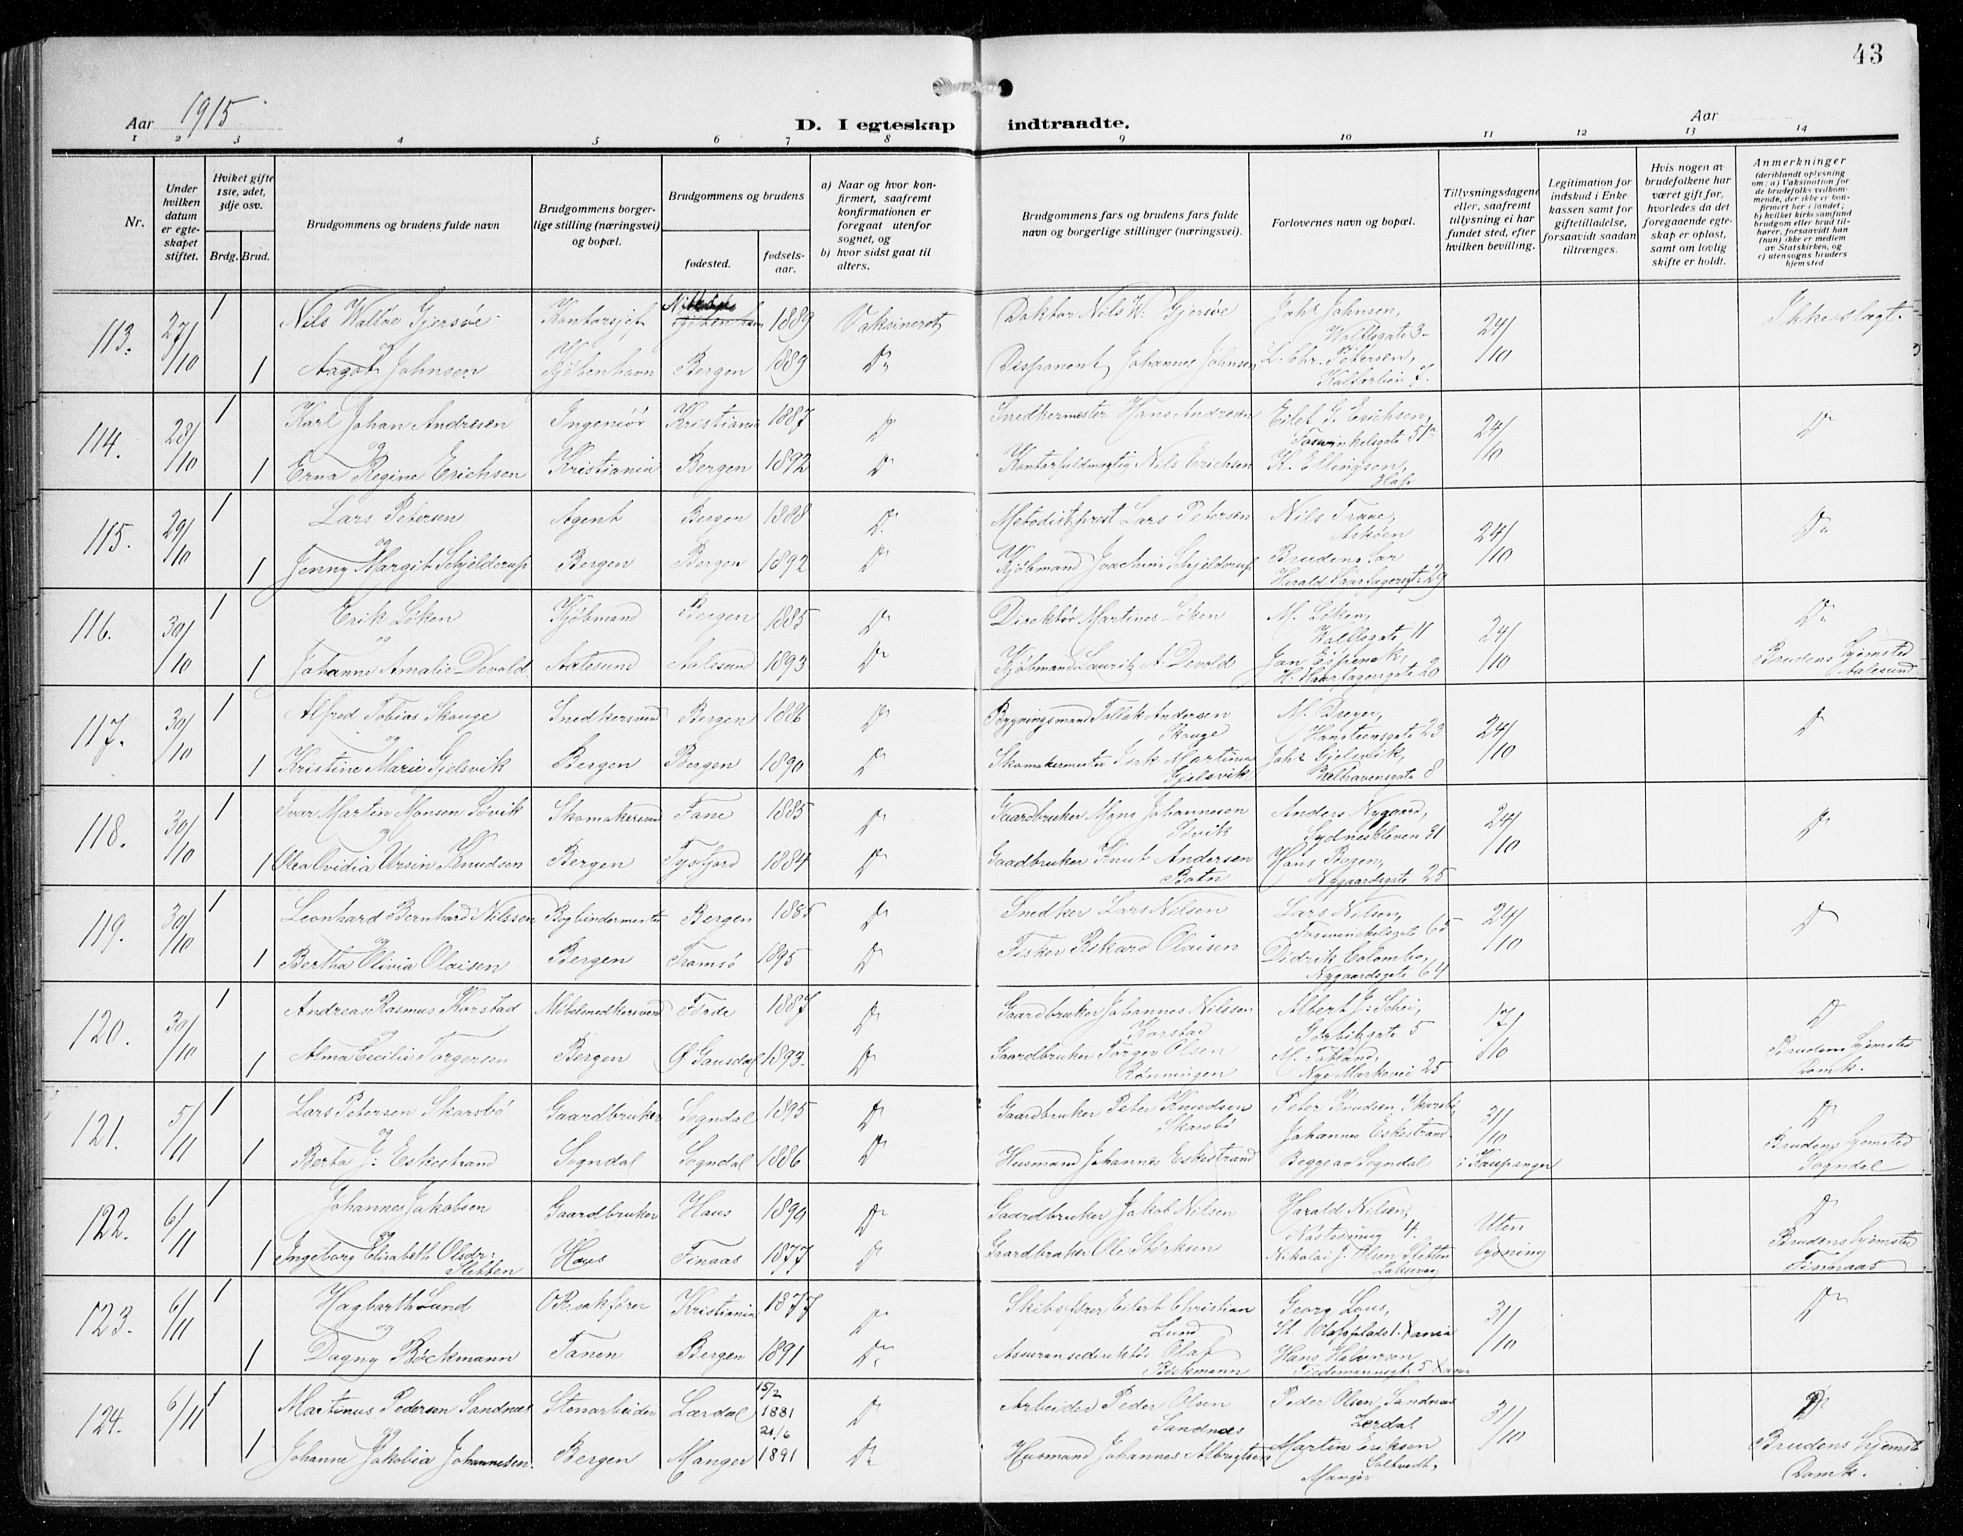 43
Aar 1915
D. I egteskap indtraadte.
Aar
1 2 3 4 5 6 7 8 9 10 11 12 13 14
Nr.
Under hvilken datum er egteskapet stiftet.
Hvilket gifte 1ste, 2det, 3dje osv.
Brdg. Brud.
Brudgommens og brudens fulde navn
Brudgommens borgerlige stilling (næringsvei) og bopæl.
Brudgommens og brudens
fødested. fødselsaar.
a) Naar og hvor konfirmert, saafremt konfirmationen er foregaat utenfor sognet, og
b) hvor sidst gaat til alters.
Brudgommens fars og brudens fars fulde navn og borgerlige stillinger (næringsvei).
Forlovernes navn og bopæl.
Tillysningsdagene eller, saafremt tillysning ei har fundet sted, efter hvilken bevilling.
Legitimation for indskud i Enkekassen samt for giftetilladelse, forsaavidt saadan tiltrænges.
Hvis nogen av brudefolkene har været gift før, hvorledes da det foregaaende egteskap er opløst, samt om lovlig skifte er holdt.
Anmerkninger (deriblandt oplysning om: a) Vaksination for de brudefolks vedkommende, der ikke er konfirmert her i landet; b) hvilket kirkesamfund brudgom eller brud tilhører, forsaavidt han (hun) ikke er medlem av Statskirken, og c) utensogns bruders hjemsted
113. 27/10 1 Nils Waltre Gjersøe Kontorsjef 1889 Vaksineret Doktor Nils W. Gjersøe Johs Johnsen, 24/10 Ikke slagt.
og Wallesgate 3
1 Aagot Johnsen Kjøbenhavn Bergen 1889 Do Disponent Johannes Johnsen L. Chr. Petersen, Kalfarbein 7.
114. 28/10 1 Karl Johan Andresen Ingeniør Kristiania 1887 Do Snedkermester Hans Andresen Eilef G. Erichsen, 24/10 Do
og Foswinkelsgate 51a
1 Erna Regine Erichsen Kristiania Bergen 1892 Do Kontorfuldmægtig Nils Erichsen K. Ellingsen, Hop
115. 29/10 1 Lars Petersen Agent Bergen 1888 Do Metodistprest Lars Petersen Nils Trane, Askøen 24/10 Do
og
1 Jenny Margit Schjelderup Bergen Bergen 1892 Do Kjøbmand Joachim Schjelderup Brudens far
Harald Haarfagersgt. 29
116. 30/10 1 Erik Løken Kjøbmand Bergen 1885 Do Direktør Martines Løken M. Løken, 24/10 Do
og Wallesgate 11
1 Johanne Amalie Devold Aalesund Aalesund 1893 Do Kjøbmand Lauritz A. Devold Jan Espienak, Brudens hjemsted
H. Haarfagersgate 20 Aalesund
117. 30/10 1 Alfred Tobias Skauge Snedkersvend Bergen 1886 Do Bygningsmand Tollak Andersen Skauge M. Dreyer, 24/10 Do
og Hansteensgate 23
1 Kristine Marie Gjelsvik Bergen Bergen 1890 Do Skomakermester Martinus Gjelsvik Johs Gjelsvik,
Welhavensgate 8
118. 30/10 1 Ivar Martin Monsen Søvik Skomakersvend Fane 1885 Do Gaardbruker Mons Johannesen Søvik Anders Nygaard, 24/10 Do
og Sydneskleven 31
1 Olea Ovidia Ursin Knudsen Bergen Tysfjord 1884 Do Gaardbruker Knut Andersen Botn Hans Bogen,
Nygaardsgate 25
119. 30/10 1 Leonhard Bernhard Nilssen Bogbindermester Bergen 1885 Do Snedker Lars Nilsen Lars Nilsen, 24/10 Do
og Foswinckelsgate 65
1 Bertha Olivia Olaisen Bergen Tromsø 1895 Do Fisker Rikard Olaisen Didrik Colombo,
Nygaardsgate 64
120. 30/10 1 Andreas Rasmus Karstad Møbelsnedkersvend Førde 1887 Do Gaardbruker Johannes Nilssen Karstad Albert J. Schei, 17/10 Do
Gørbitzgate 5
1 Alma Cecilie Torgersen Bergen Ø. Gausdal 1893 Do Gaardbruker Torger Olsen Rønningen M. Totland, Brudens hjemsted
Nye Markevei 25 Domk.
121. 5/11 1 Lars Petersen Skarsbø Gaardbruker Sogndal 1895 Do Gaardbruker Peter Knudsen Skarsbø Peter Knudsen Skarsbø 31/10 Do
og
1 Berta J. Eskestrand Sogndal Sogndal 1886 Do Husmand Johannes Eskestrand Johannes Eskestrand i Kaupanger Brudens hjemsted
Begge av Sogndal Sogndal
122. 6/11 1 Johannes Jakobsen Gaardbruker Haus 1890 Do Gaardbruker Jakob Nilsen Harald Nilsen, Uten Do
og 4.
1 Ingeborg Elisabeth Olsdr. Sletten Haus Finaas 1877 Do Gaardbruker Ole Størksen Nikolai J. Olsen Sletten lysning Brudens hjemsted
Laksevaag Finnaas
123. 6/11 1 Hagbarth Lund O.R.sakfører Kristiania 1877 Do Skibsfører Eilert Christian Lund Georg Lous, 31/10 Do
og St. Olafsplads 1. Xania
1 Dagny Bøckmann Fanen Bergen 1891 Do Assuransedirektør Olaf Bøckmann Hans Halvorsen
Tidemannsgt 5 Xania
124. 6/11 1 Martinus Pedersen Sandnæs Stenarbeider Lærdal 15/2 1881 Do Arbeider Peder Olsen Sandnæs Peder Olsen Sandnæs 31/10 Do
og Lærdal
1 Johanne Jakobia Johannesen. Bergen Manger 21/6 1891 Do Husmand Johannes Albregtsen Martin Eriksen Brudens hjemsted
Soltvedt, Manger Domk.